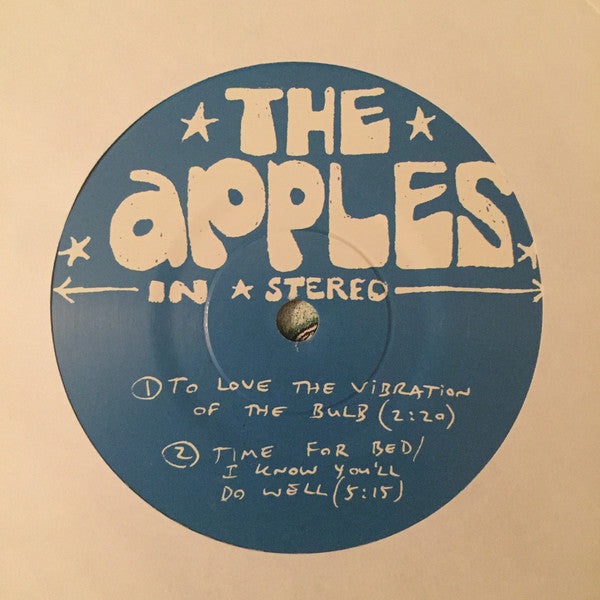 THE
aPPLES
IN ★ STEREO
① TO LOVE THE VIBRATION
OF THE BULB (2:20)
② TIME FOR BED/
I KNOW YOU'LL
DO WELL (5:15)